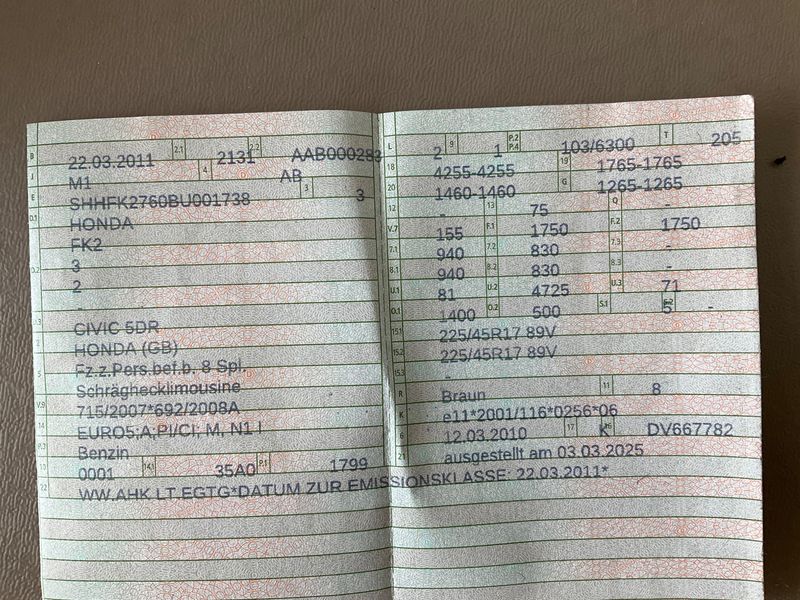 B 22.03.2011 2.1 2131 2.2 AAB000283
J M1 4 AB
E SHHFK2760BU001738 3 3
D.1 HONDA
FK2
D.2 3
2
-
D.3 CIVIC 5DR
HONDA (GB)
5 Fz.z.Pers.bef.b. 8 Spl.
Schräghecklimousine
V.9 715/2007*692/2008A
14 EURO5;A;PI/CI; M, N1 I
P.3 Benzin
10 0001 14.1 35A0 P.1 1799
22 WW.AHK LT.EGTG*DATUM ZUR EMISSIONSKLASSE: 22.03.2011*
L 2 9 1 P.2 P.4 103/6300 T 205
18 4255-4255 19 1765-1765
20 1460-1460 G 1265-1265
12 - 13 75 Q -
V.7 155 F.1 1750 F.2 1750
7.1 940 7.2 830 7.3 -
8.1 940 8.2 830 8.3 -
U.1 81 U.2 4725 U.3 71
O.1 1400 O.2 500 S.1 5 S.2 -
15.1 225/45R17 89V
15.2 225/45R17 89V
15.3 -
R Braun 11 8
K e11*2001/116*0256*06
6 12.03.2010 17 K 16 DV667782
21 ausgestellt am 03.03.2025